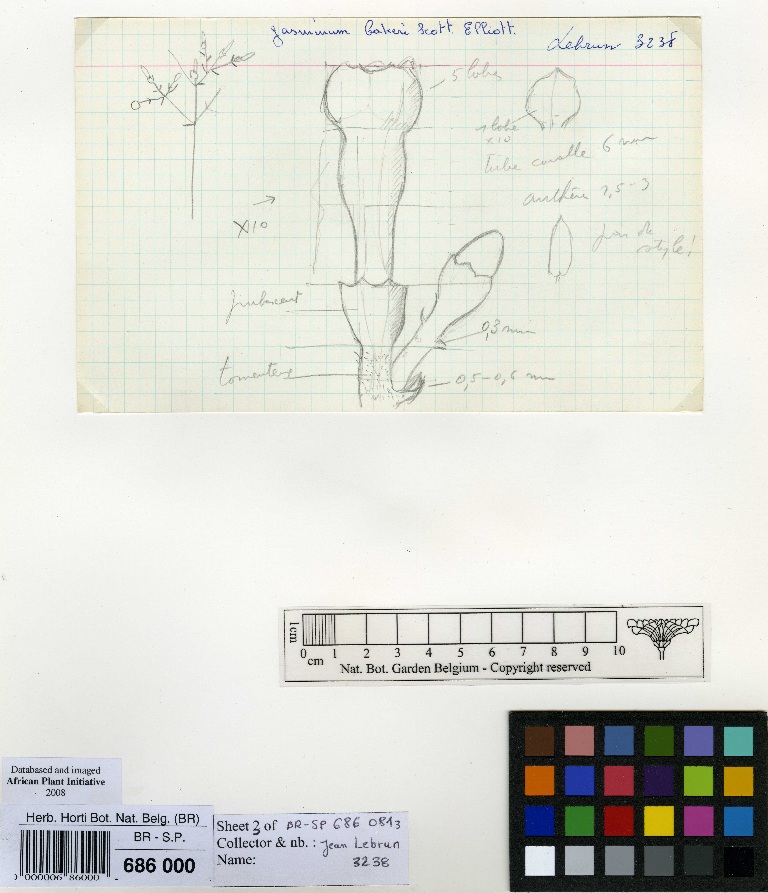 Jasminum bakeri Scott. Elliott.
Lebrun 3238
5 lobes
1 lobe
x10
tube corolle 6 mm
anthère 2,5-3
pas de
style!
X10
pubescent
0,3 mm
tomenteux
0,5-0,6 mm
1cm
0 1 2 3 4 5 6 7 8 9 10
cm
Nat. Bot. Garden Belgium - Copyright reserved
Databased and imaged
African Plant Initiative
2008
Herb. Horti Bot. Nat. Belg. (BR)
BR - S.P.
686 000
0 000006 86000
Sheet 3 of BR-SP 686 0843
Collector & nb. : Jean Lebrun
Name: 3238